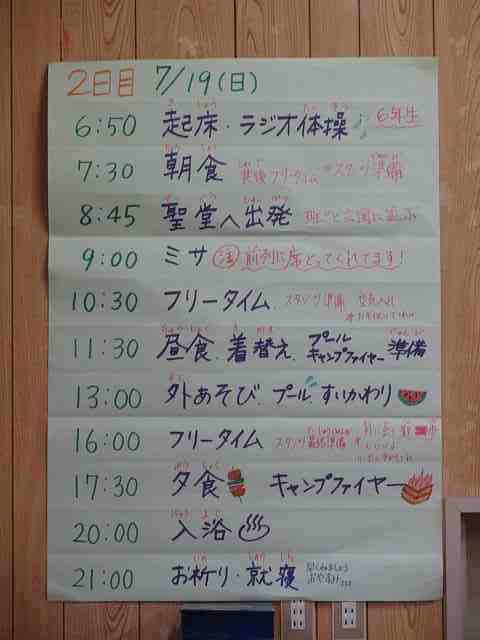 2日目 7/19(日)
6:50 起床・ラジオ体操♪ 6年生
7:30 朝食 食後フリータイム スタンツ準備
8:45 聖堂へ出発
9:00 ミサ 注 前列に席とってくれてます!
10:30 フリータイム スタンツ準備
11:30 昼食、着替え、プール キャンプファイヤー 準備
13:00 外あそび、プール すいかわり
16:00 フリータイム スタンツ最終準備
17:30 夕食 キャンプファイヤー
20:00 入浴
21:00 お祈り・就寝